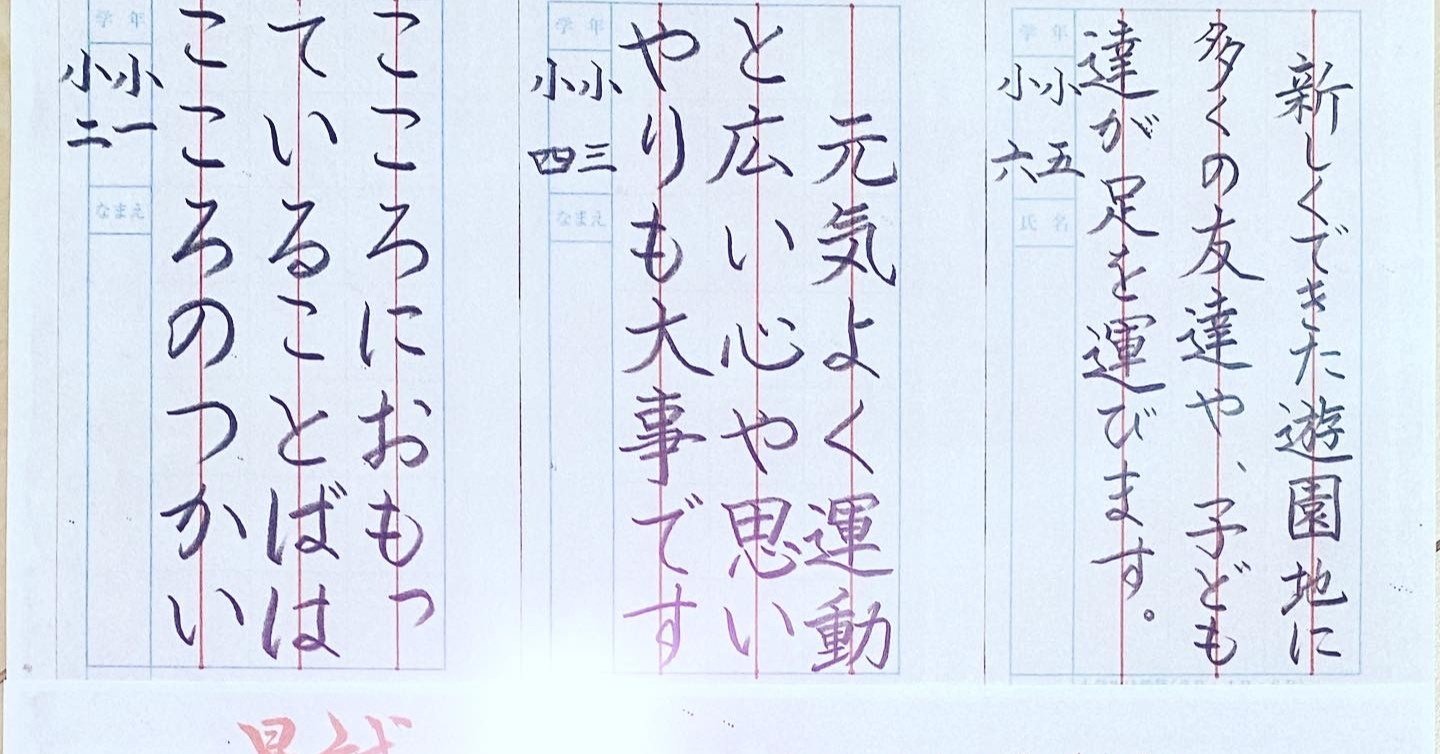 新しくできた遊園地に
多くの友達や、子ども
達が足を運びます。
学年
小五
小六
氏名
元気よく運動
と広い心や思い
やりも大事です
学年
小三
小四
なまえ
こころにおもっ
ていることばは
こころのつかい
学年
小一
小二
なまえ